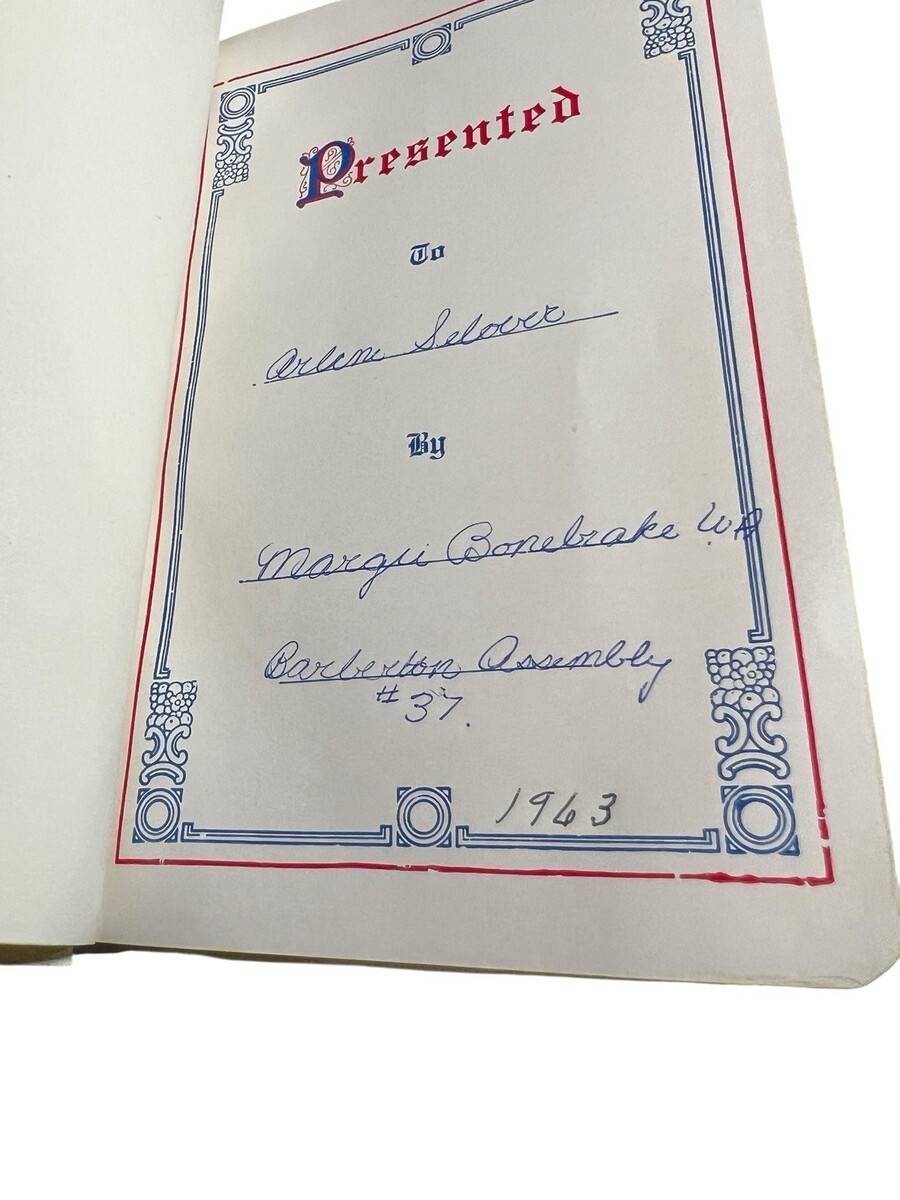 Presented
To
Arlene Selover
By
Margie Bonebrake W.A.
Barberton Assembly
#37.
1963